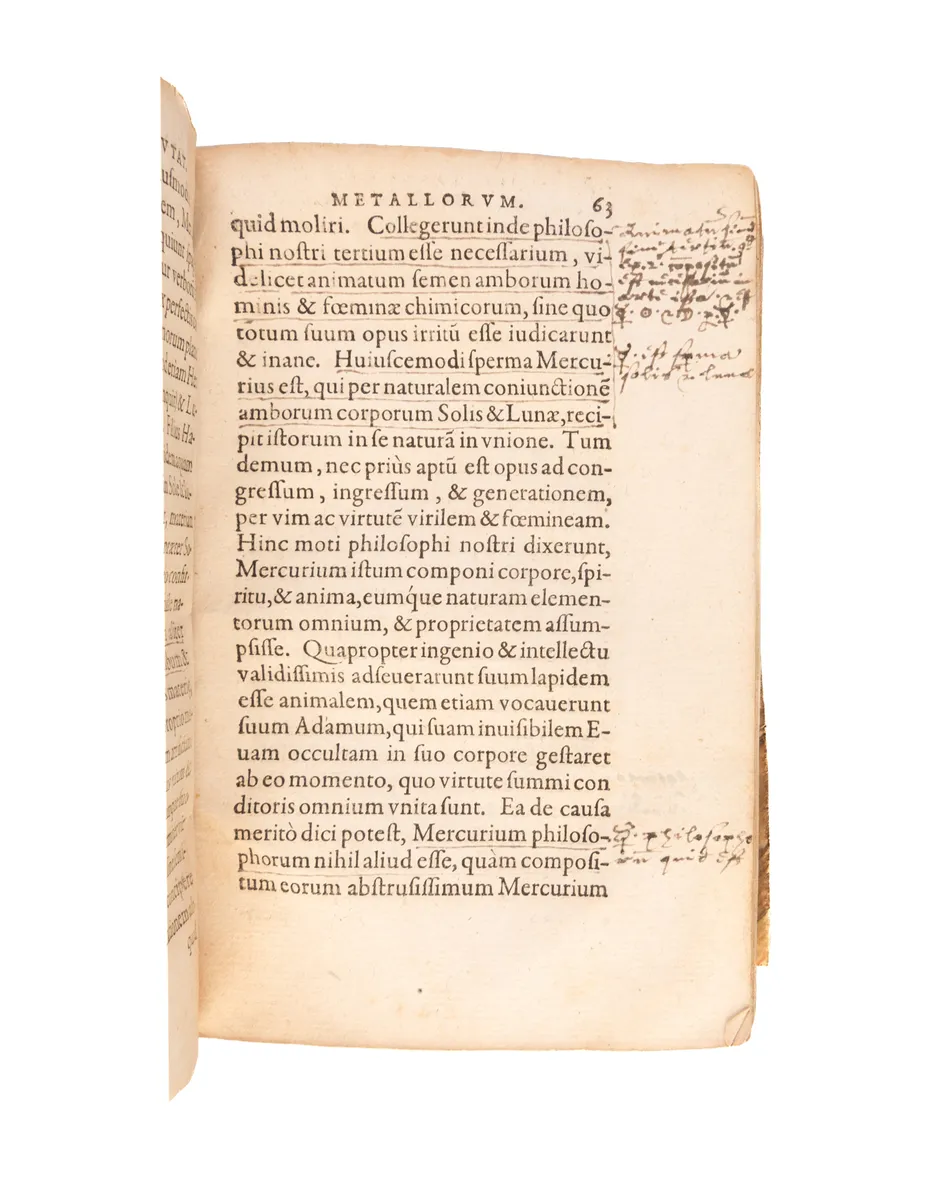 METALLORVM. 63
quid moliri. Collegerunt inde philoso-
phi nostri tertium esse necessarium, vi-
delicet animatum semen amborum ho-
minis & fœminæ chimicorum, sine quo
totum suum opus irritū esse iudicarunt
& inane. Huiuscemodi sperma Mercu-
rius est, qui per naturalem coniunctionē
amborum corporum Solis & Lunæ, reci-
pit istorum in se naturā in vnione. Tum
demum, nec priùs aptū est opus ad con-
gressum, ingressum, & generationem,
per vim ac virtutē virilem & fœmineam.
Hinc moti philosophi nostri dixerunt,
Mercurium istum componi corpore, spi-
ritu, & anima, eumq́ue naturam elemen-
torum omnium, & proprietatem assum-
psisse. Quapropter ingenio & intellectu
validissimis adseuerarunt suum lapidem
esse animalem, quem etiam vocauerunt
suum Adamum, qui suam inuisibilem E-
uam occultam in suo corpore gestaret
ab eo momento, quo virtute summi con
ditoris omnium vnita sunt. Ea de causa
meritò dici potest, Mercurium philoso-
phorum nihil aliud esse, quàm composi-
tum eorum abstrusissimum Mercurium
☿. est sperma
solis & lunæ
☿. philosopho
rū quid est